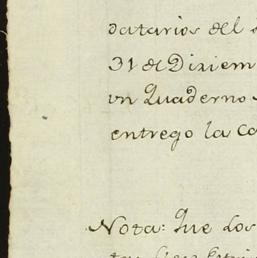 datarios del
31 de Diziem
un Quaderno
entrego la Ca
Nota: Que los